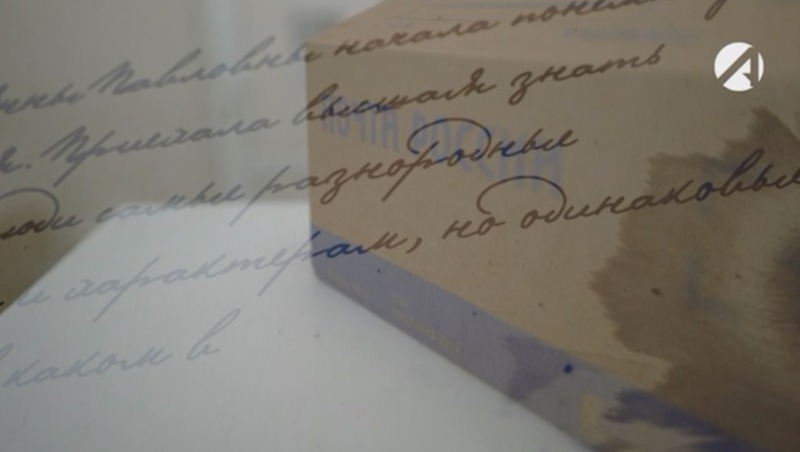 нны Павловны начала понем
я. Приехала высшая знать
люди самые разнородные
и характерам, но одинаковые
в каком в